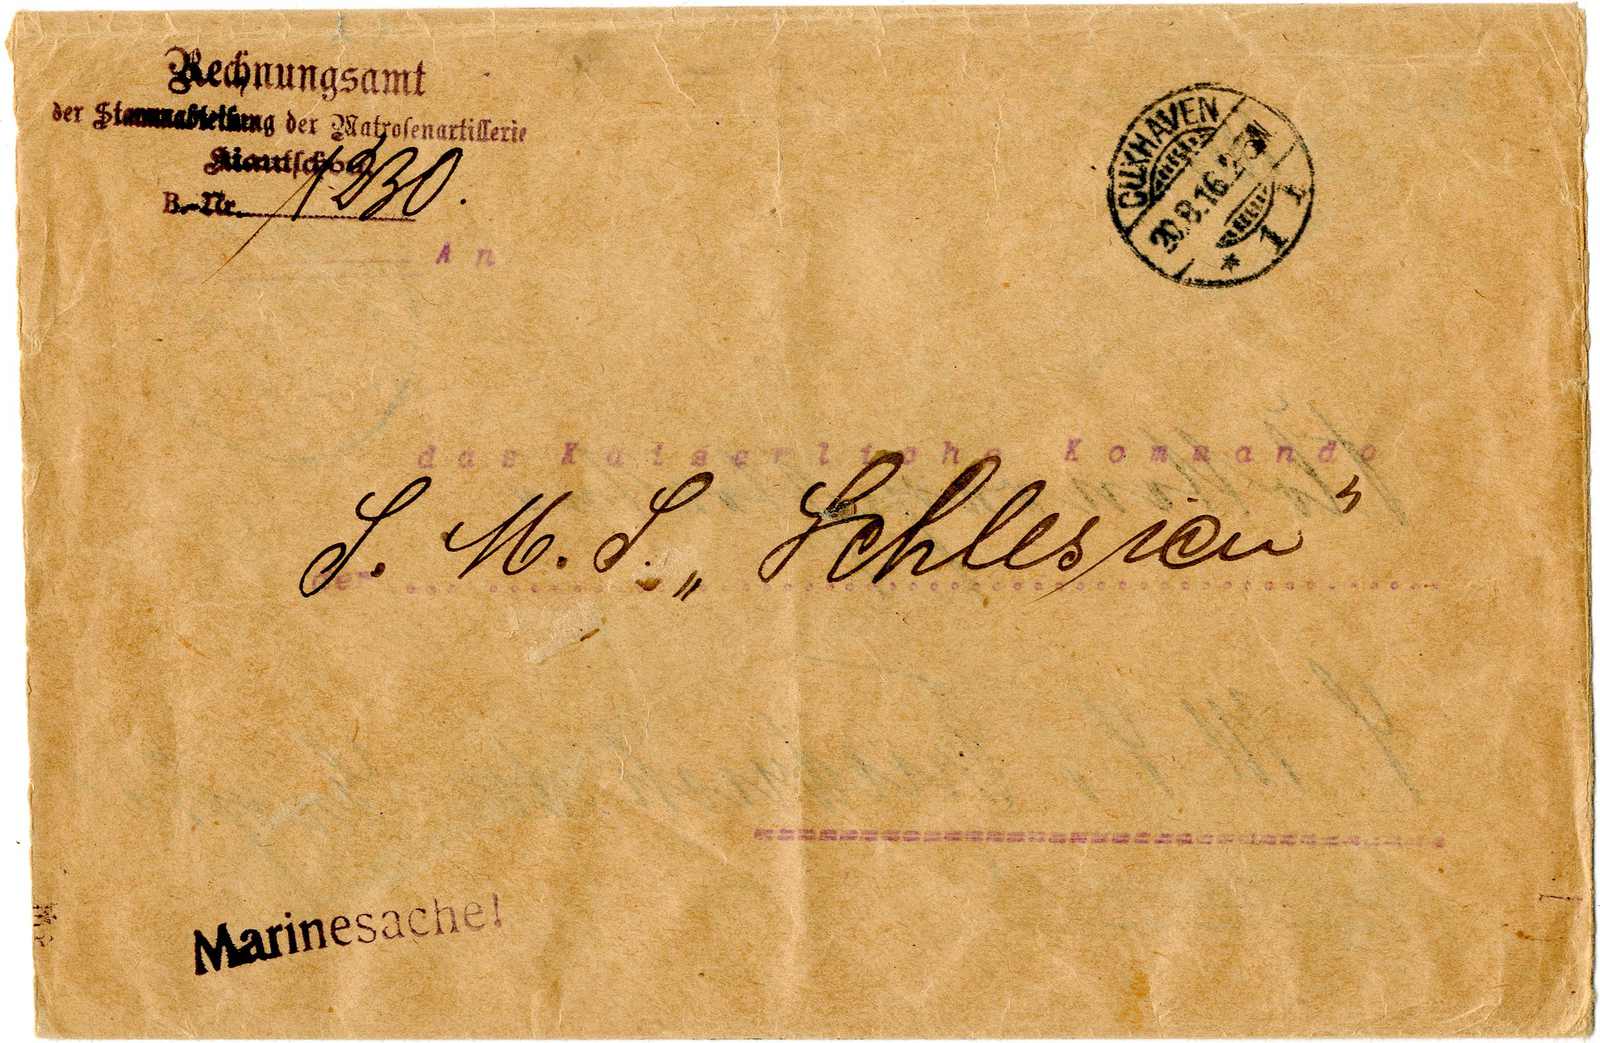 Rechnungsamt
der Stammabteilung der Matrosenartillerie
Kiautschou
B.-Nr. 1230.
An
CUXHAVEN
20.8.16.
* 1 L
das Kaiserliche Kommando
S. M. S. „Schlesien“
der
Marinesache!